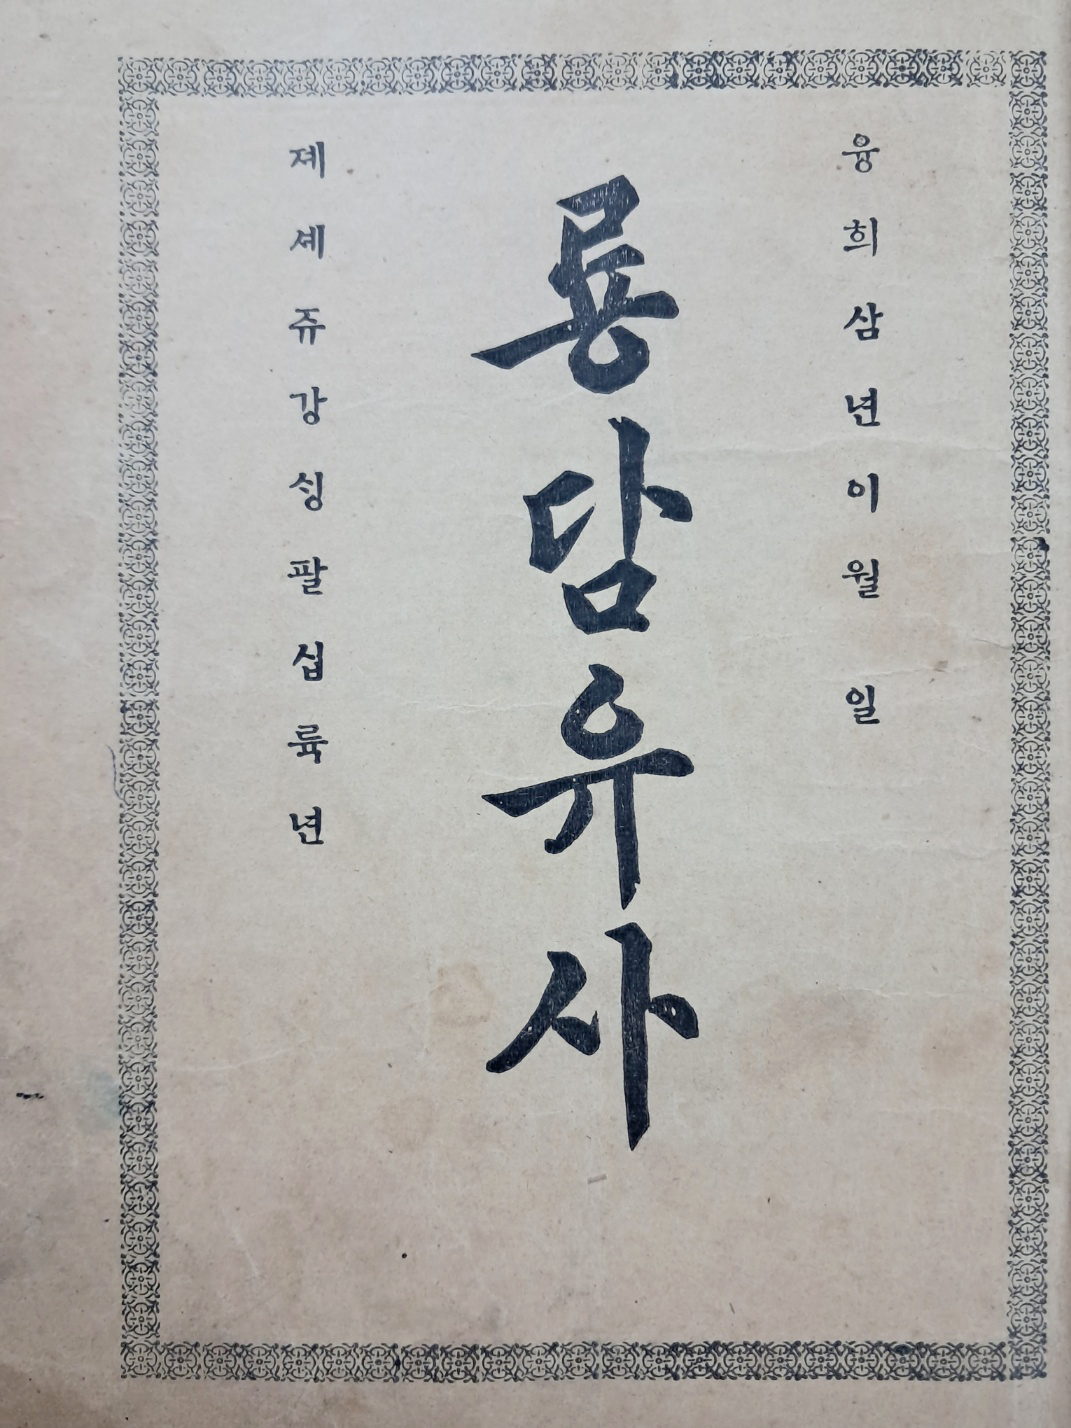 융희삼년이월 일
룡담유사
졔셰쥬강싱팔십륙년